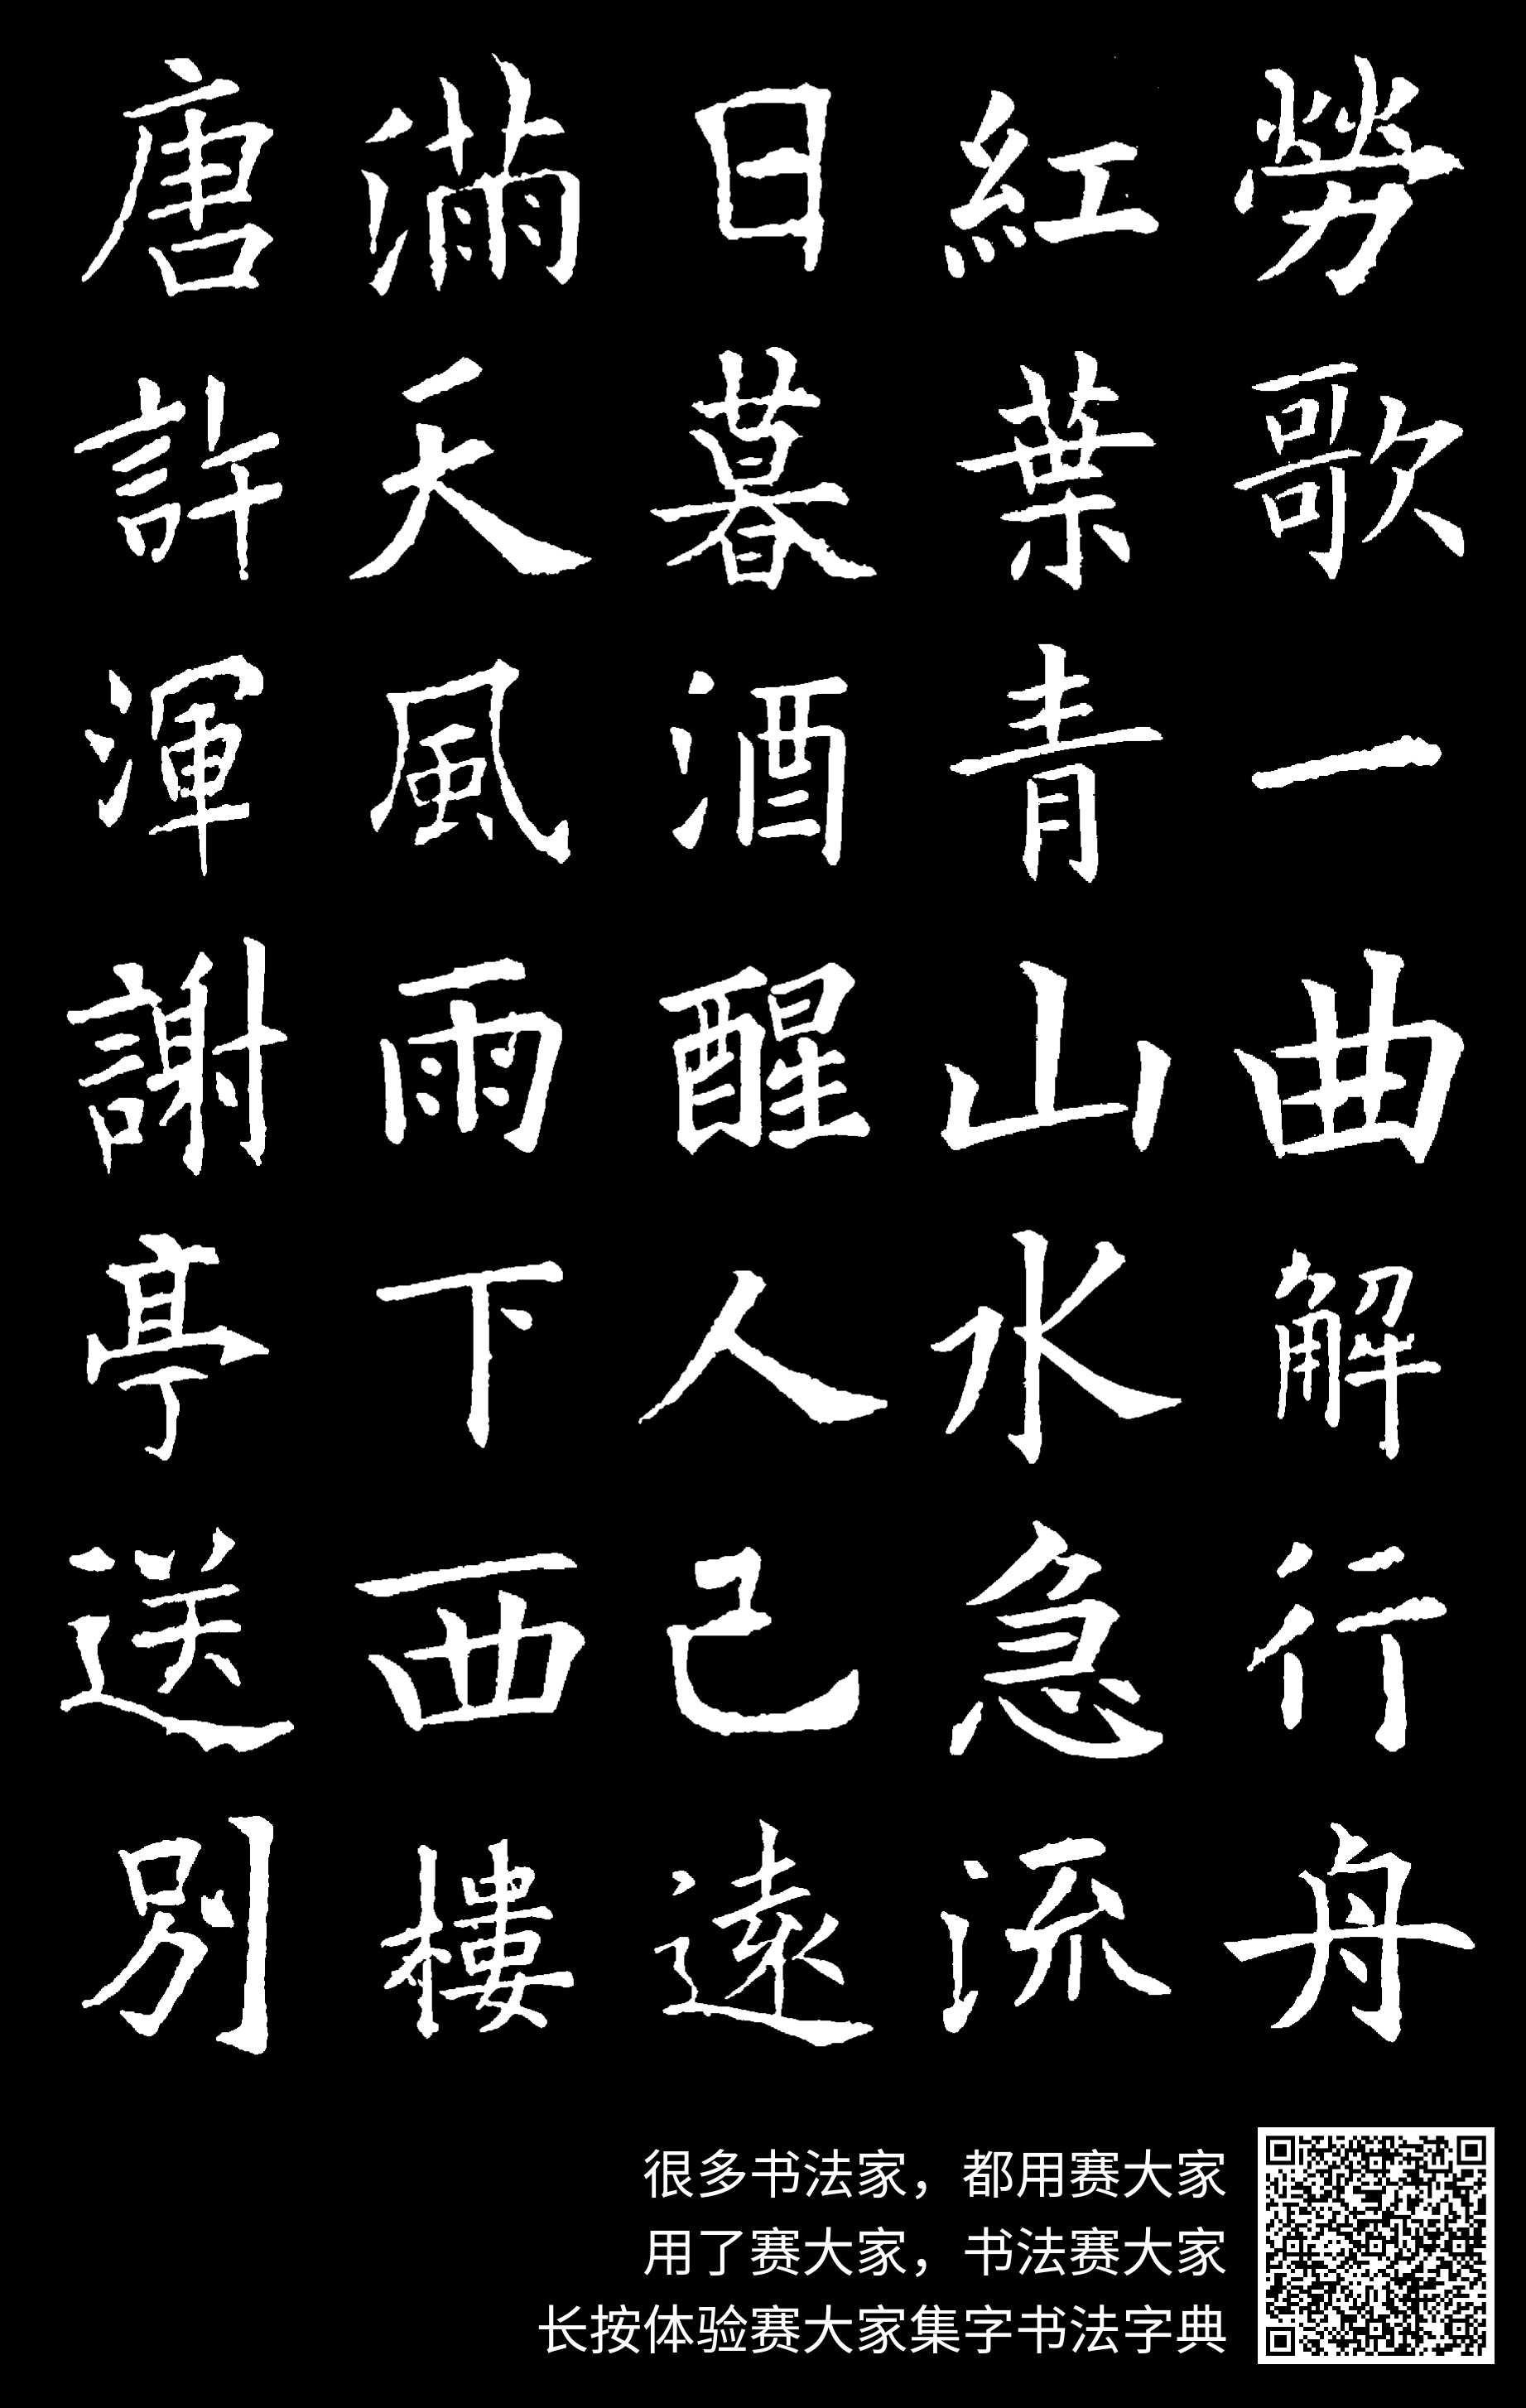 勞歌一曲解行舟
紅葉青山水急流
日暮酒醒人己遠
滿天風雨下西樓
唐許渾謝亭送別
很多书法家，都用赛大家
用了赛大家，书法赛大家
长按体验赛大家集字书法字典